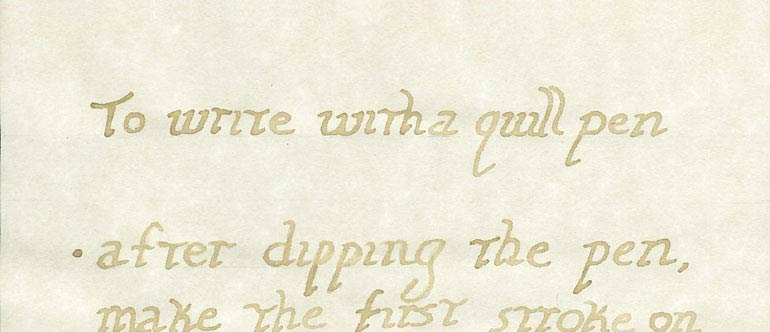 To write with a quill pen
• after dipping the pen,
make the first stroke on